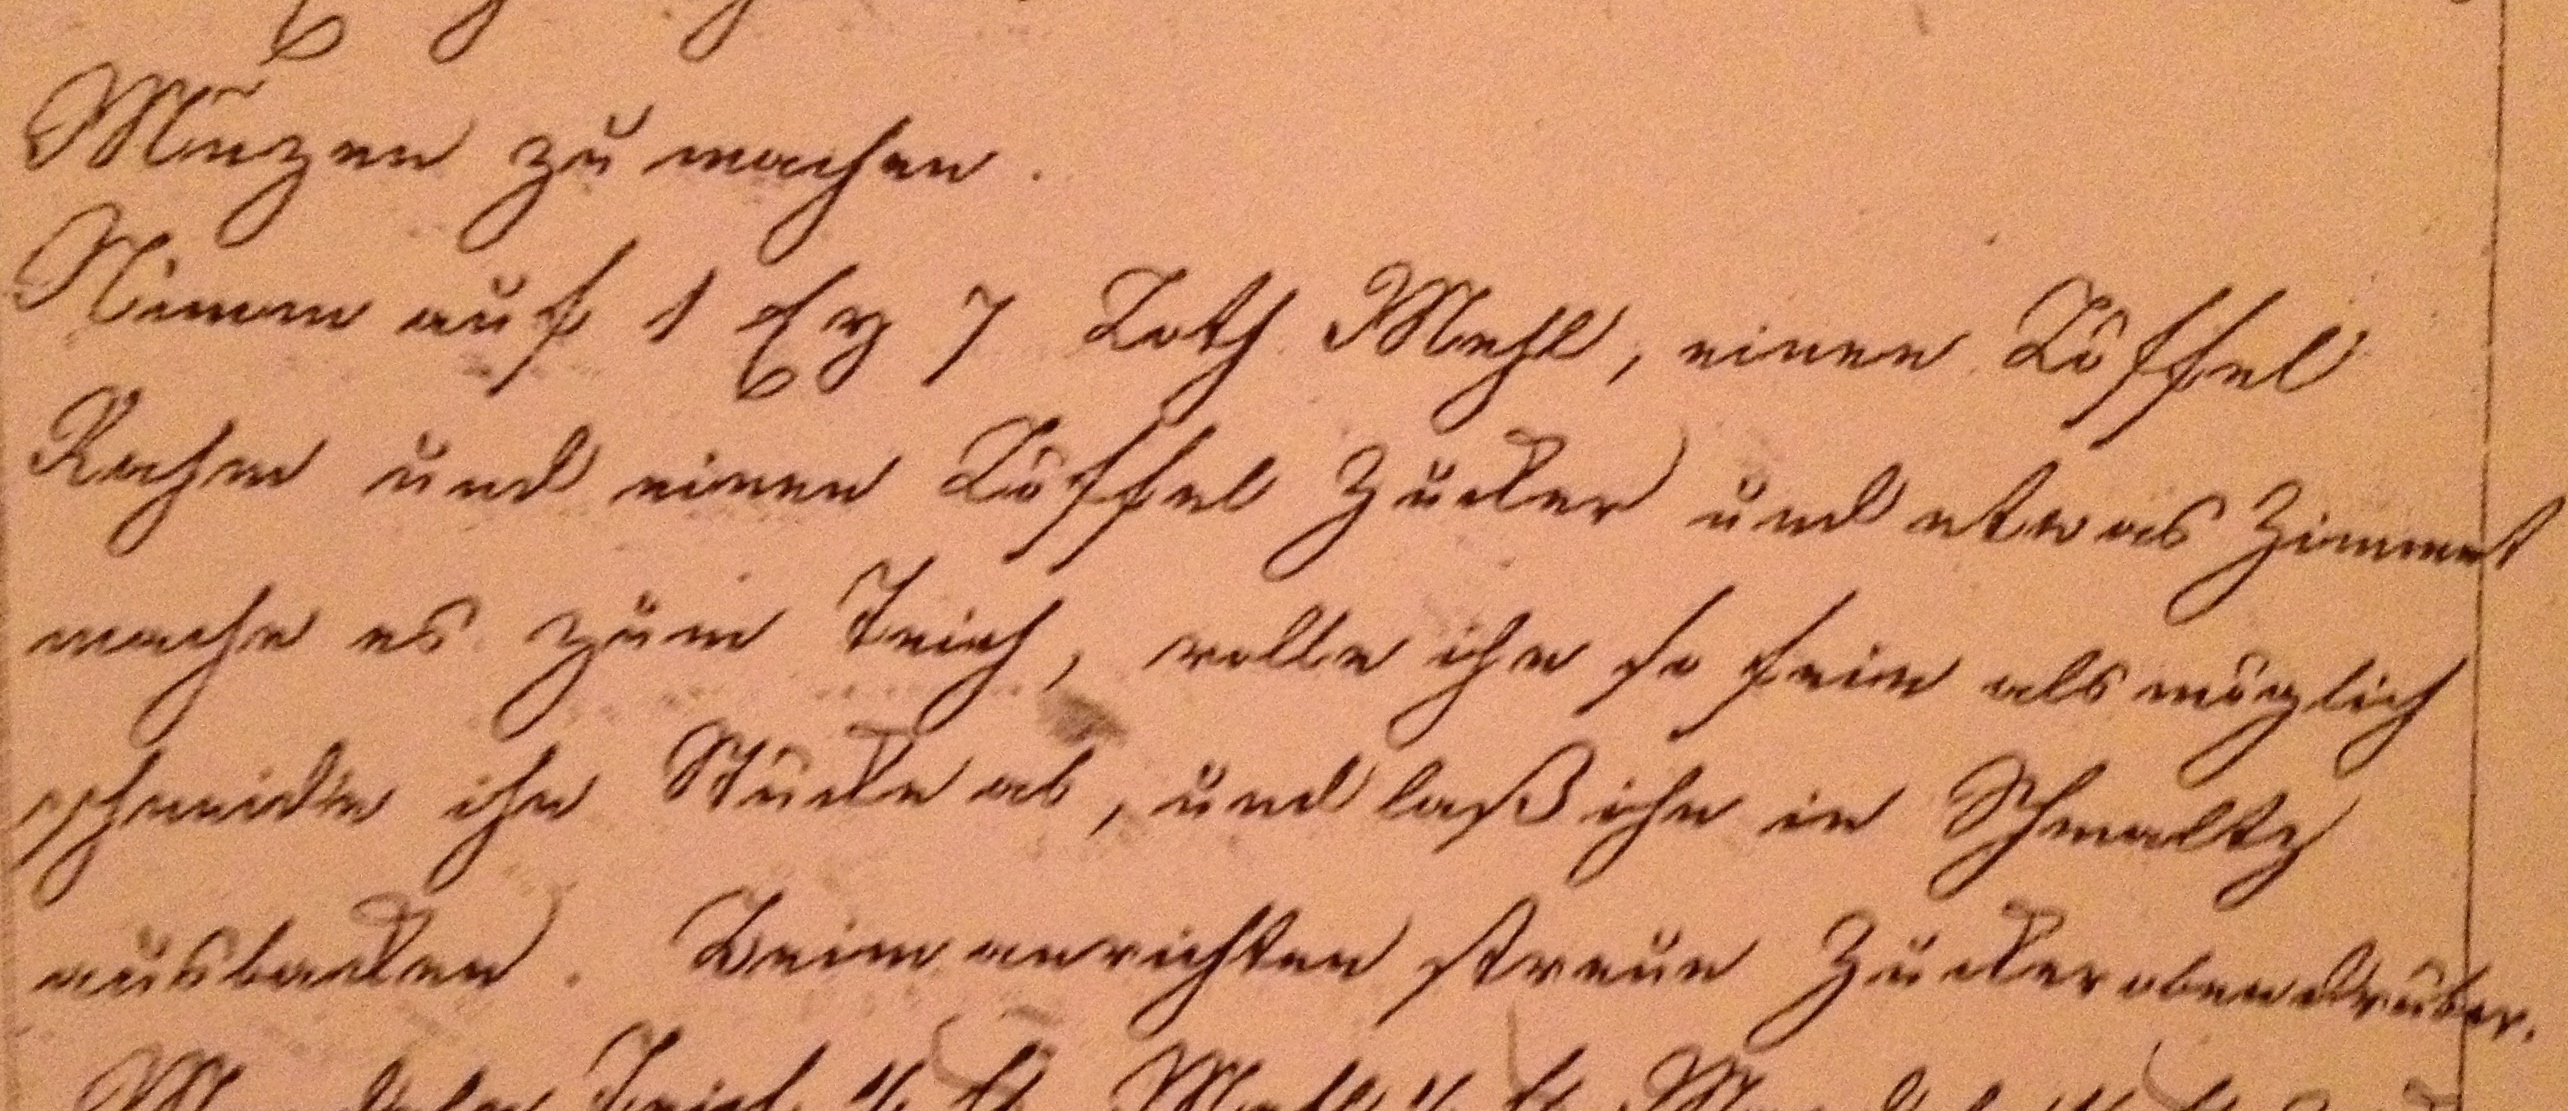 Müzen zu machen.
Nimm auf 1 Ey 7 Loth Mehl, einen Löffel
Rahm und einen Löffel Zucker und etwas Zimmet
mache es zum Teich, rolle ihn so fein als möglich
schneide ihn Stücke ab, und laß ihn in Schmaltz
ausbacken. Beim anrichten streue Zucker oben drüber.
Teich Mehl